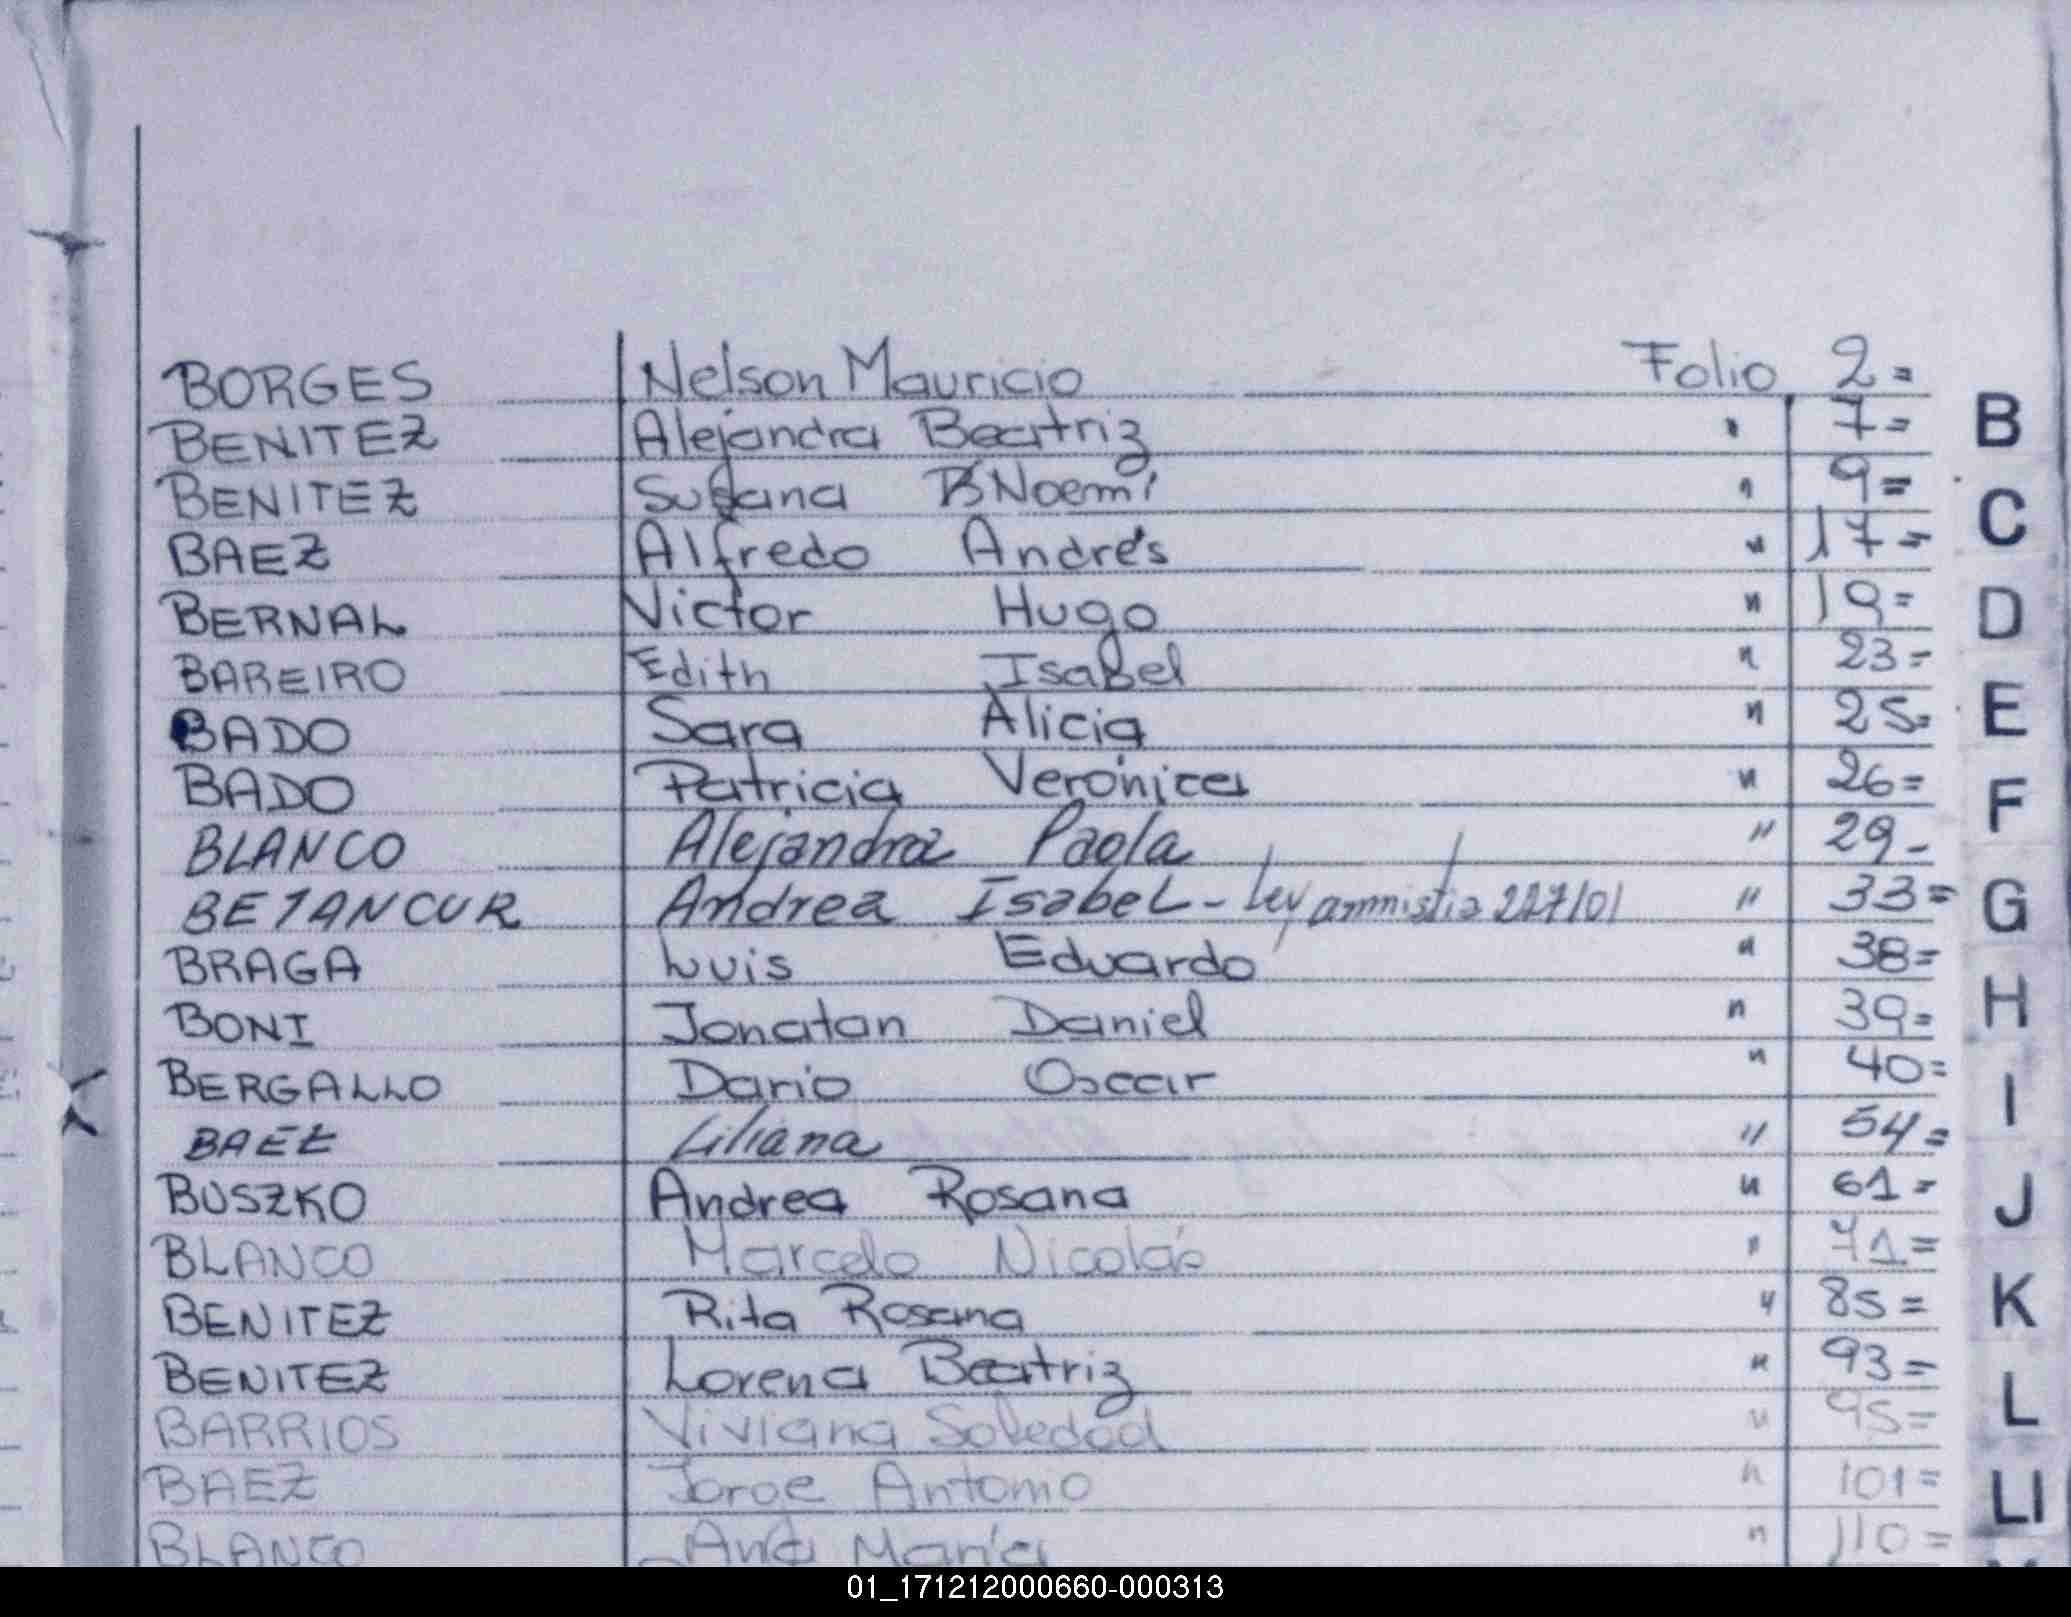 BORGES Nelson Mauricio Folio 2=
BENITEZ Alejandra Beatriz " 7=
BENITEZ Susana Noemí " 9=
BAEZ Alfredo Andrés " 17=
BERNAL Victor Hugo " 19=
BAREIRO Edith Isabel " 23=
BADO Sara Alicia " 25=
BADO Patricia Verónica " 26=
BLANCO Alejandra Paola " 29-
BETANCUR Andrea Isabel - Ley amnistia 227/01 " 33=
BRAGA Luis Eduardo " 38=
BONI Jonatan Daniel " 39=
BERGALLO Dario Oscar " 40=
BAEZ Liliana " 54=
BUSZKO Andrea Rosana " 61=
BLANCO Marcelo Nicolás " 71=
BENITEZ Rita Rosana " 85=
BENITEZ Lorena Beatriz " 93=
BARRIOS Viviana Soledad " 95=
BAEZ Jorge Antonio " 101=
BLANCO Ana María " 110=
B
C
D
E
F
G
H
I
J
K
L
Ll
01_171212000660-000313